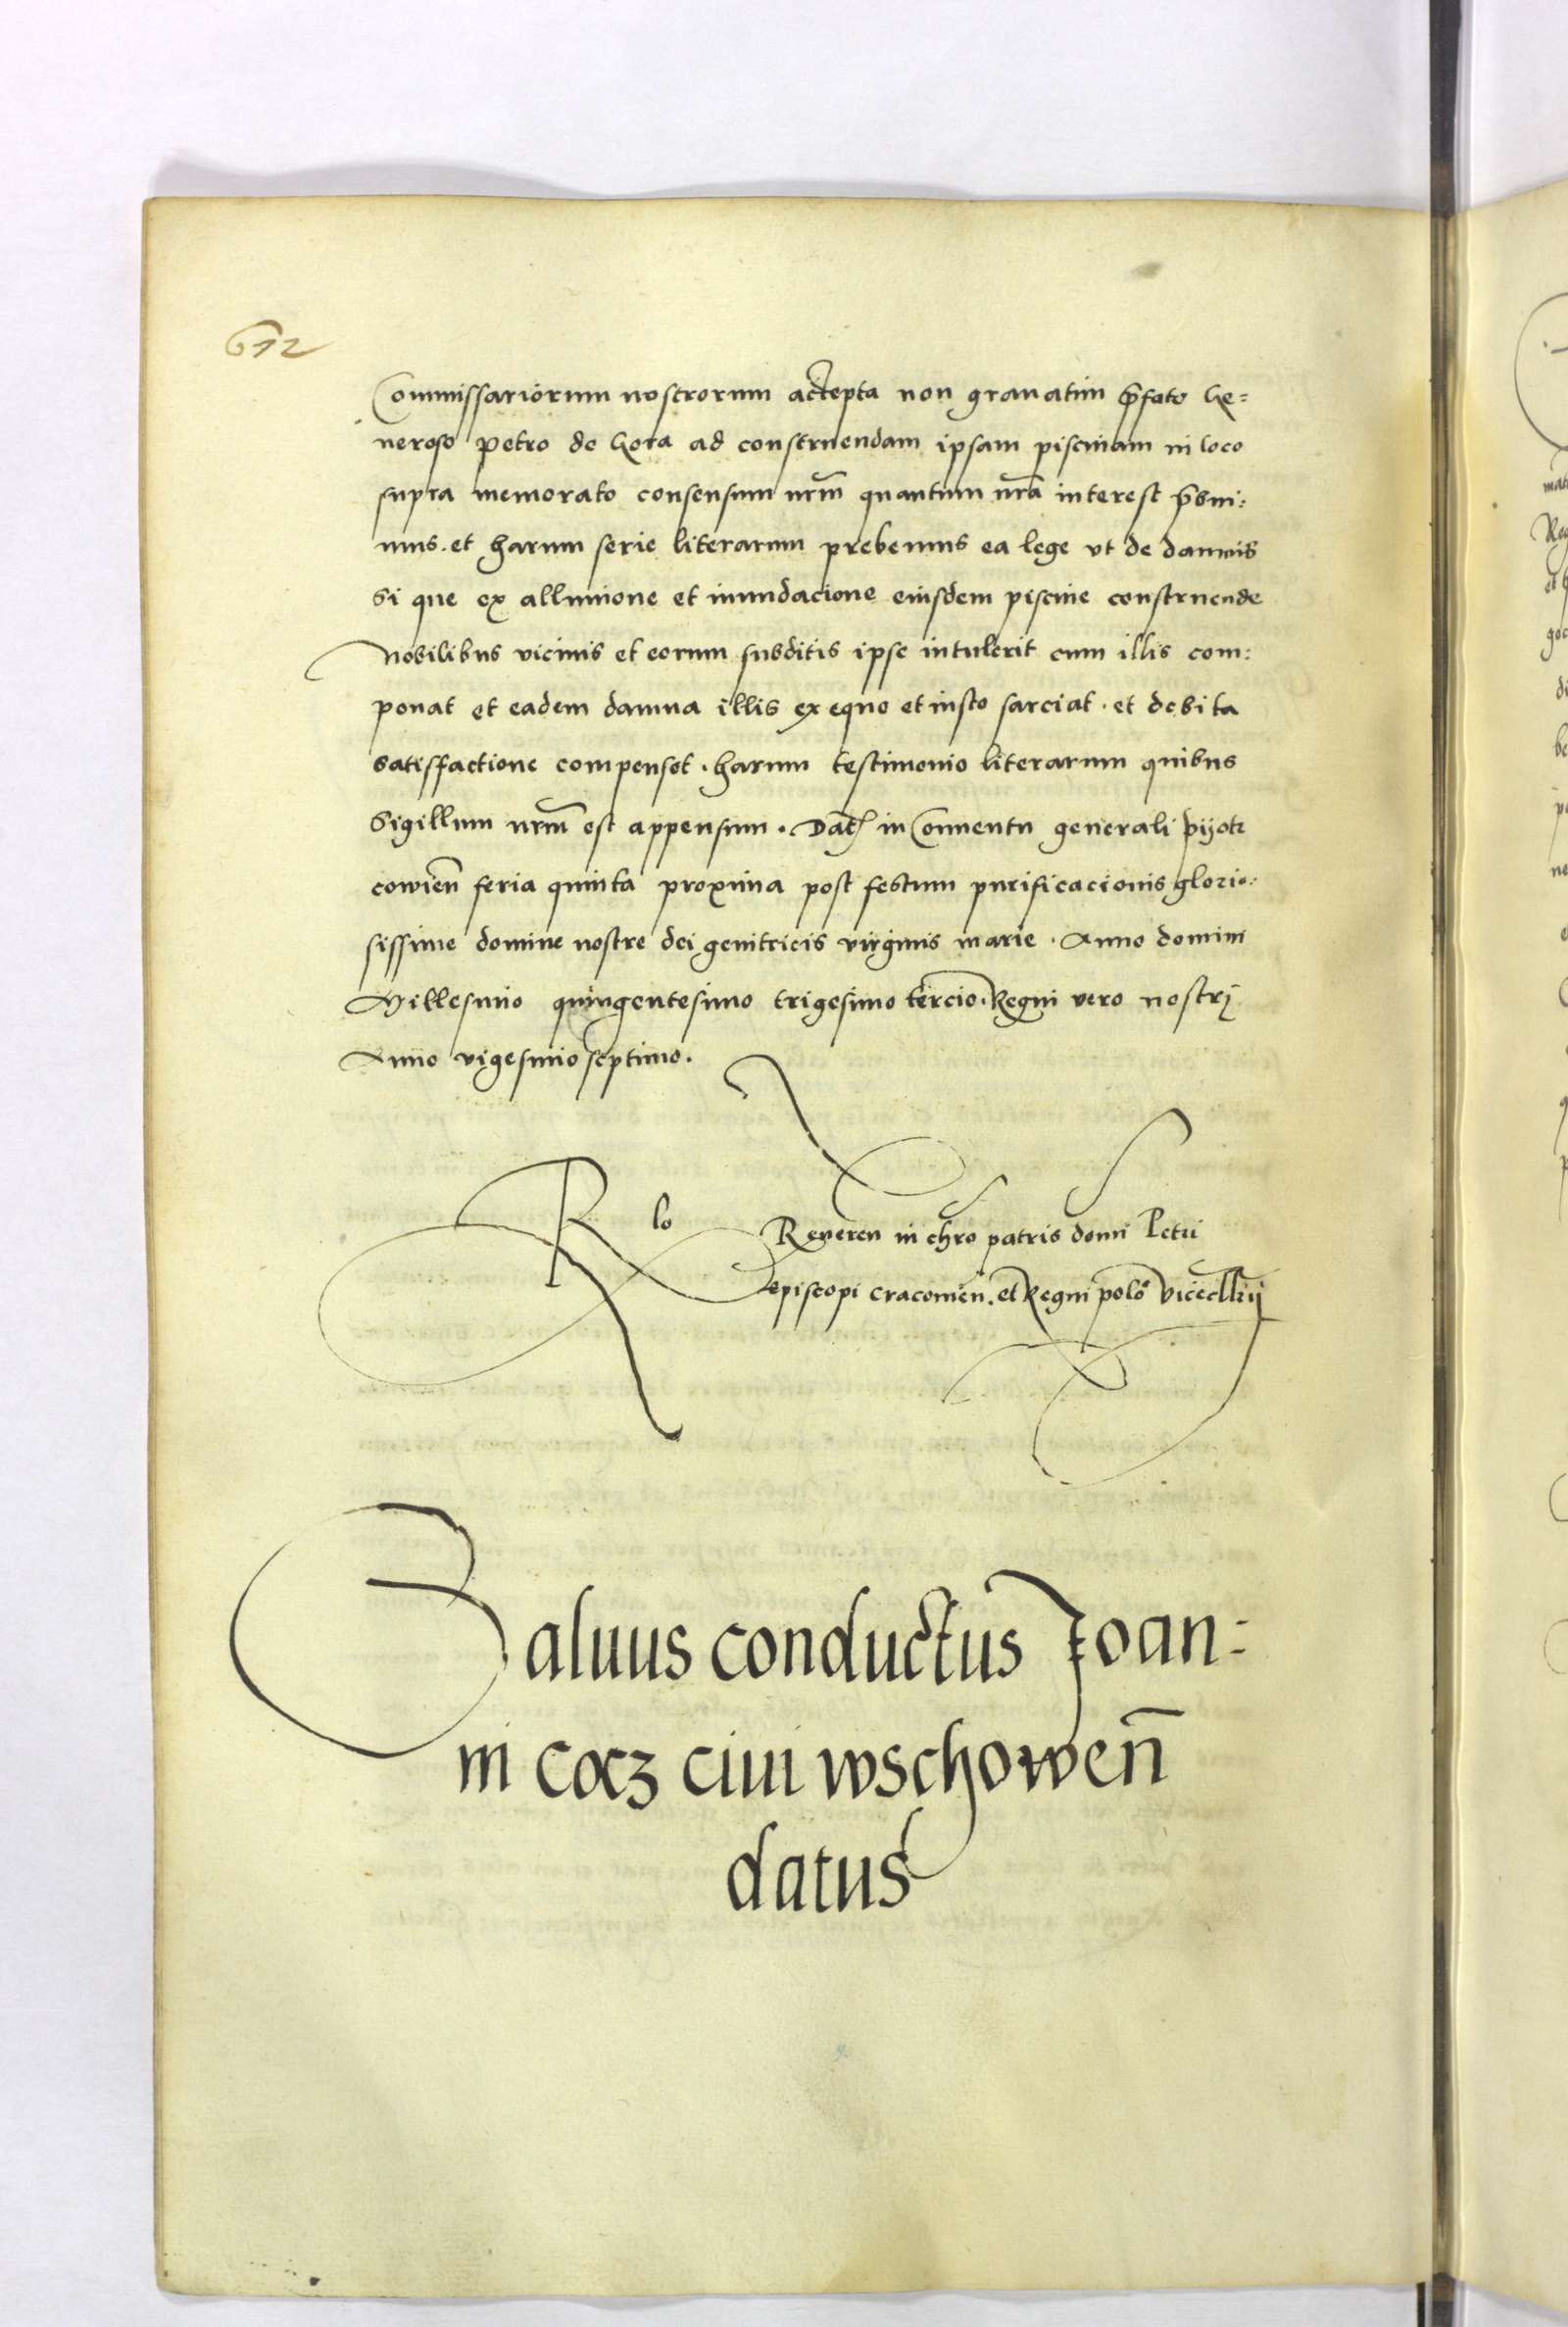 612
Commissariorum nostrorum accepta non grauatim p̃fato Ge=
neroso Petro de Gora ad construendam ipsam piscinam in loco
supra memorato consensum nrm̃ quantum nrã interest p̃bui:
mus. et harum serie literarum prebemus ea lege vt de damnis
si que ex alluuione et inundacione eiusdem piscine construende
Nobilibus vicinis et eorum subditis ipse intulerit cum illis com:
ponat et eadem damna illis ex equo et iusto sarciat. et debita
satisfactione compenset. harum testimonio literarum quibus
Sigillum nrm̃ est appensum. Dat̃ in Conuentu generali pijotr
cowień feria quinta proxima post festum purificacionis glorio:
sissime domine nostre dei genitricis virginis marie. Anno domini
Millesimo quingentesimo trigesimo tercio. Regni vero nostri
Anno vigesimo septimo.
Rlo Reueren in chro patris domi Petri
episcopi cracouien̄. et Regni polo vicecllrij
Saluus conductus Joan:
ni cocz ciui wschowen̄
datus